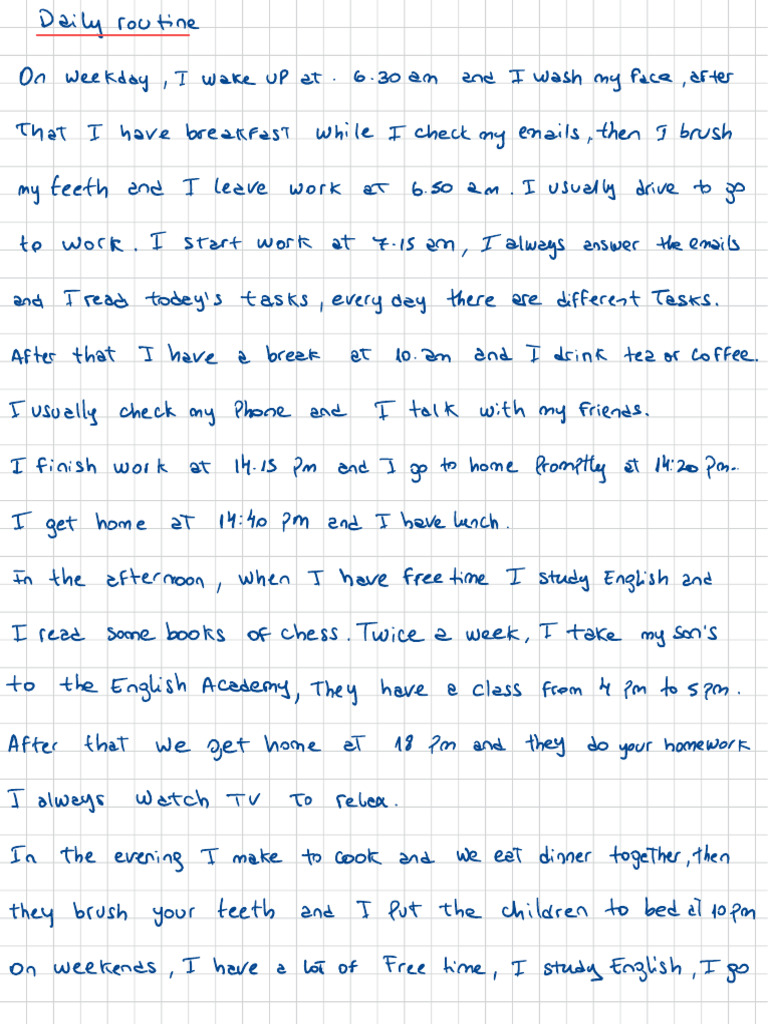 Daily routine
On weekday, I wake up at. 6.30 am and I wash my face, after
that I have breakfast while I check my emails, then I brush
my teeth and I leave work at 6.50 am. I usually drive to go
to work. I start work at 7.15 am, I always answer the emails
and I read today's tasks, every day there are different tasks.
After that I have a break at 10.am and I drink tea or coffee.
I usually check my phone and I talk with my friends.
I finish work at 14.15 pm and I go to home promptly at 14:20 pm.
I get home at 14:40 pm and I have lunch.
In the afternoon, when I have free time I study English and
I read some books of chess. Twice a week, I take my son's
to the English Academy, they have a class from 4 pm to 5 pm.
After that we get home at 18 pm and they do your homework
I always watch TV to relax.
In the evening I make to cook and we eat dinner together, then
they brush your teeth and I put the children to bed at 10 pm
on weekends, I have a lot of free time, I study English, I go